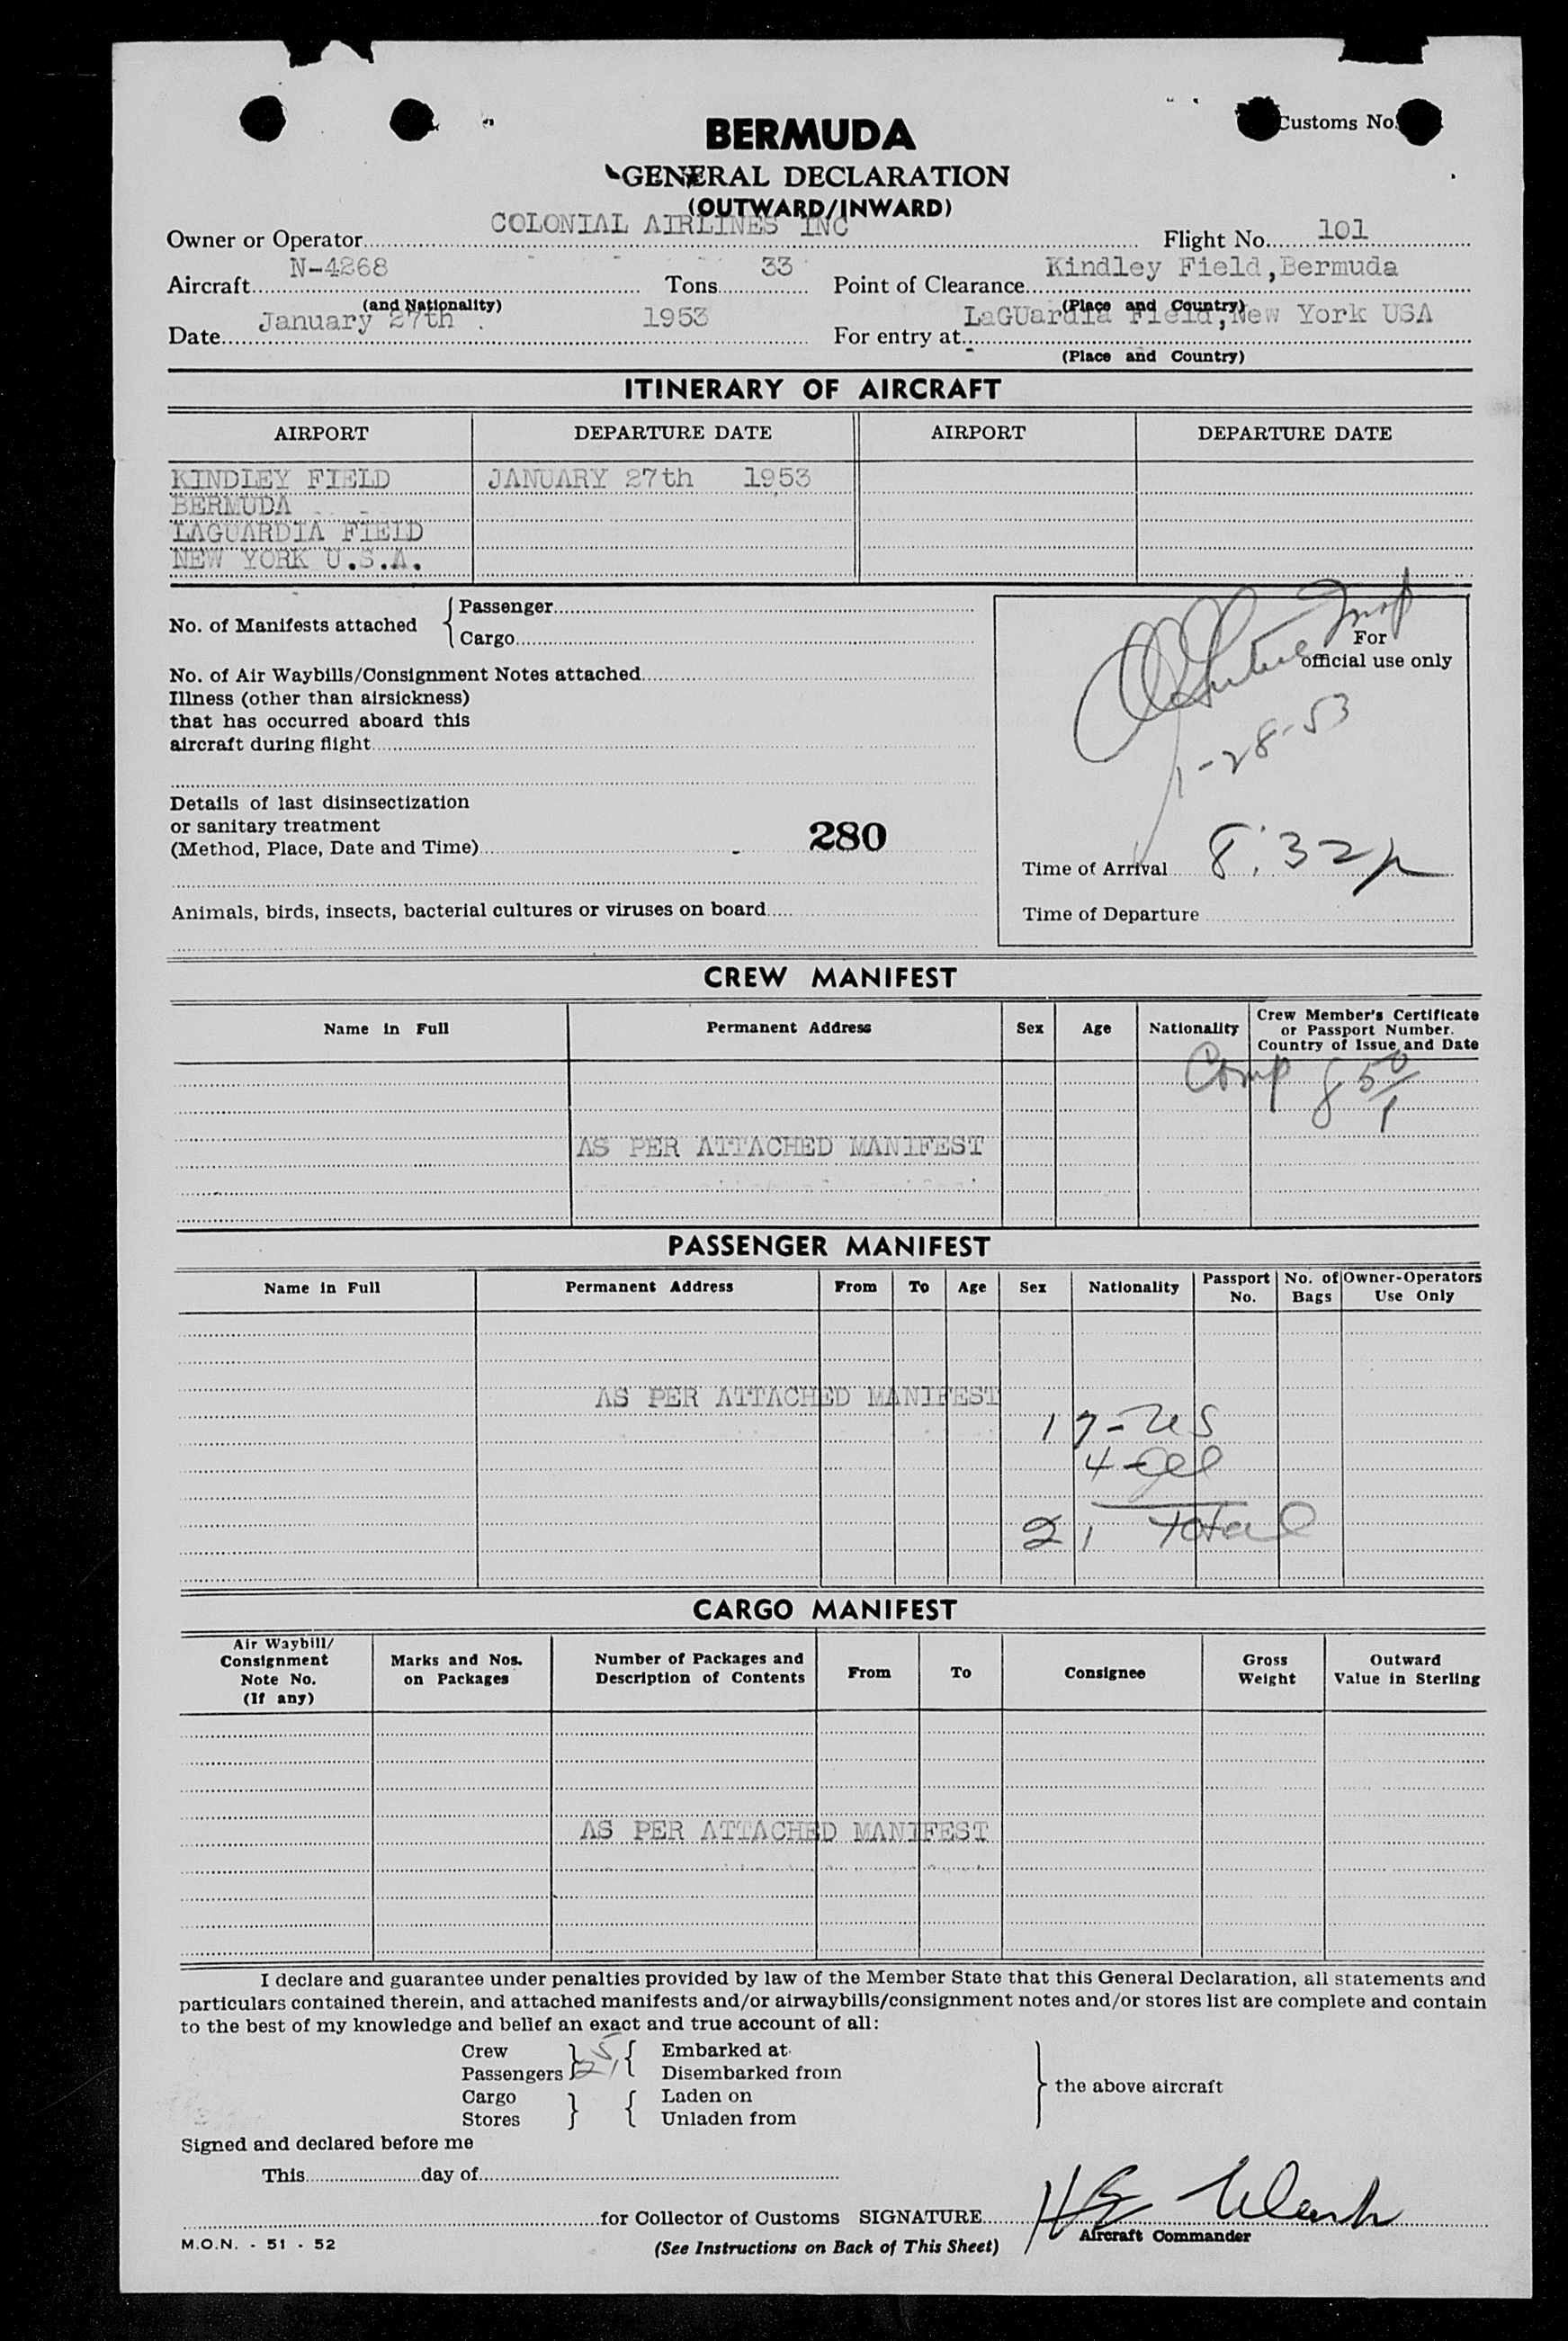 Customs No.
BERMUDA
GENERAL DECLARATION
(OUTWARD/INWARD)
Owner or Operator COLONIAL AIRLINES INC Flight No. 101
Aircraft N-4268 Tons 33 Point of Clearance Kindley Field, Bermuda
(and Nationality) (Place and Country)
Date January 27th 1953 For entry at LaGUardia Field, New York USA
(Place and Country)
ITINERARY OF AIRCRAFT
AIRPORT DEPARTURE DATE AIRPORT DEPARTURE DATE
KINDLEY FIELD JANUARY 27th 1953
BERMUDA
LAGUARDIA FIELD
NEW YORK U.S.A.
No. of Manifests attached { Passenger
Cargo
For
official use only
No. of Air Waybills/Consignment Notes attached
Illness (other than airsickness)
that has occurred aboard this
aircraft during flight
1-28-53
Details of last disinsectization
or sanitary treatment
(Method, Place, Date and Time)
280
Time of Arrival 8:32p
Animals, birds, insects, bacterial cultures or viruses on board
Time of Departure
CREW MANIFEST
Name in Full Permanent Address Sex Age Nationality Crew Member's Certificate or Passport Number. Country of Issue and Date
Comp 8 50/1
AS PER ATTACHED MANIFEST
PASSENGER MANIFEST
Name in Full Permanent Address From To Age Sex Nationality Passport No. No. of Bags Owner-Operators Use Only
AS PER ATTACHED MANIFEST
17-US
4-
21 Total
CARGO MANIFEST
Air Waybill/ Consignment Note No. (If any) Marks and Nos. on Packages Number of Packages and Description of Contents From To Consignee Gross Weight Outward Value in Sterling
AS PER ATTACHED MANIFEST
I declare and guarantee under penalties provided by law of the Member State that this General Declaration, all statements and
particulars contained therein, and attached manifests and/or airwaybills/consignment notes and/or stores list are complete and contain
to the best of my knowledge and belief an exact and true account of all:
Crew } 5 { Embarked at
Passengers } 21 { Disembarked from
} the above aircraft
Cargo } { Laden on
Stores } { Unladen from
Signed and declared before me
This day of
for Collector of Customs SIGNATURE
Aircraft Commander
M.O.N. - 51 - 52
(See Instructions on Back of This Sheet)